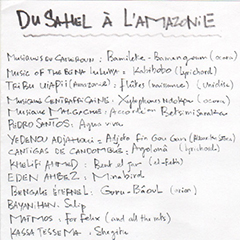 DU SAHEL À L'AMAZONIE
MUSIQUES DU CAMEROUN : Bamileke - Bamoun (ocora)
MUSIC OF THE BENA LULUWA : Kabobobo (Lyrichord)
TRIBU WAIAPI (Amazonie) : flûtes (naissance) (unidisc)
MUSIQUE CENTRAFRICAINE : Xylophones Ndokpa (ocora)
MUSIQUE MALGACHE : Accordéon Betsimisaraka
PEDRO SANTOS : Agua viva
YEDENOU ADJAHOUI : Adjoto Fin Gou
CANTIGAS DE CANDOMBLE : Angolana (Lyrichord)
KHELIFI AHMED : Bent el
EDEN AHBEZ : Minabird
BENGALE ETERNEL : Gour - Bâoul (orion)
BAYAN-HAN : Salip
MATMOS : for felix (and all the rats)
KASSA TESSEMA :